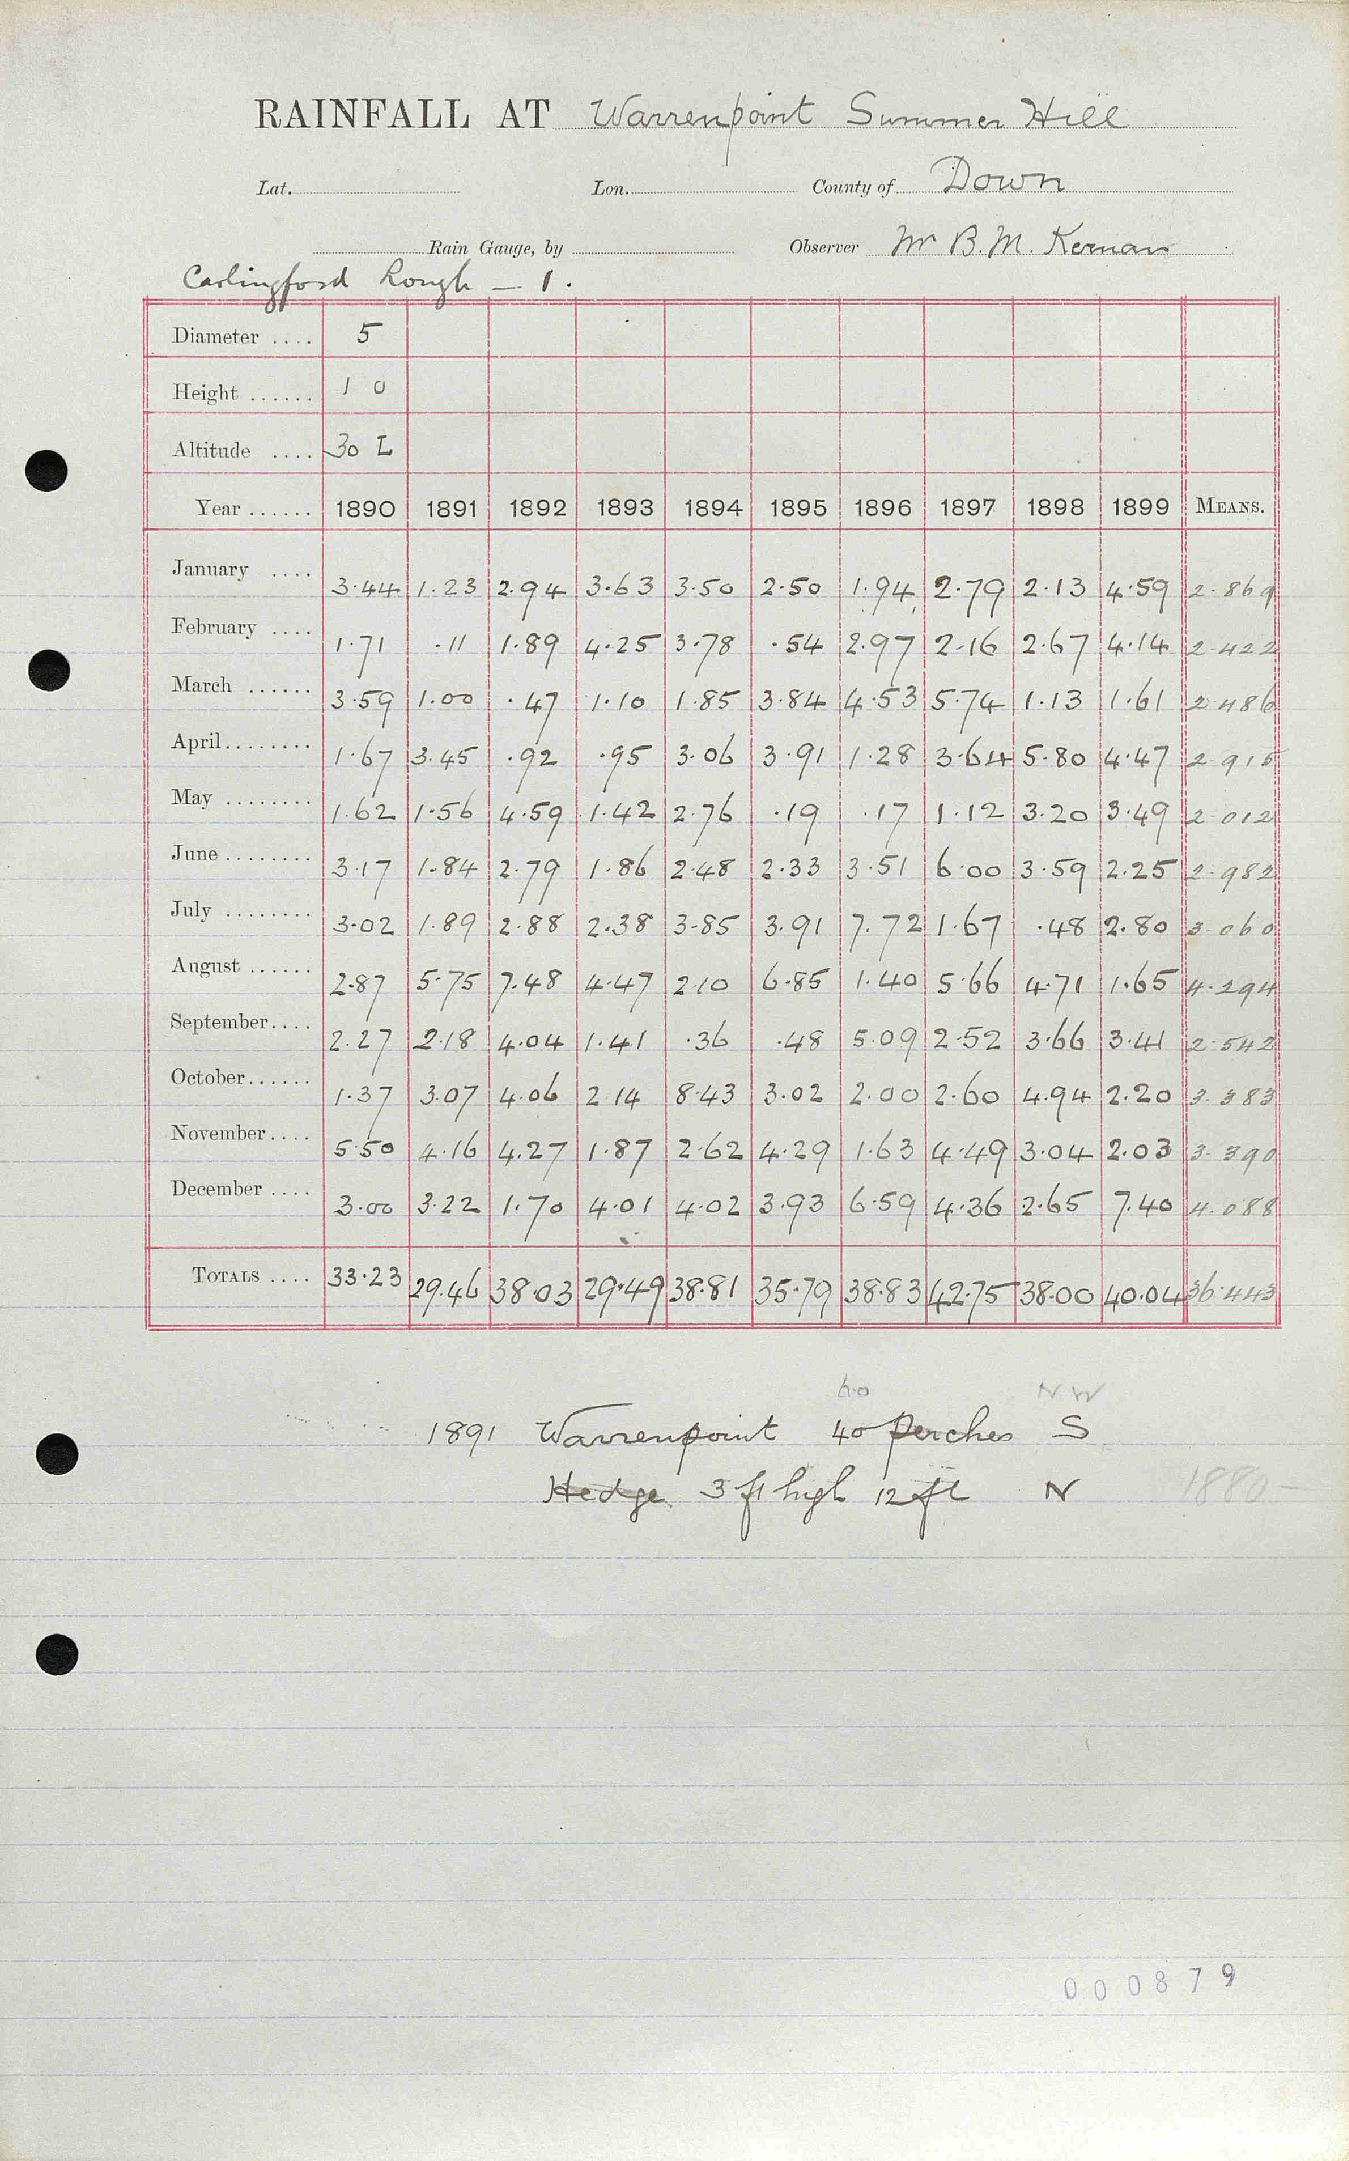 RAINFALL AT Warrenpoint Summer Hill
Lat. Lon. County of Down
Rain Gauge, by Observer Mr B. M. Kernan
Carlingford Lough — 1.
Diameter .... 5
Height ...... 1 0
Altitude .... 30 L
Year ...... 1890 1891 1892 1893 1894 1895 1896 1897 1898 1899 MEANS.
January .... 3.44 1.23 2.94 3.63 3.50 2.50 1.94 2.79 2.13 4.59 2.869
February .... 1.71 .11 1.89 4.25 3.78 .54 2.97 2.16 2.67 4.14 2.422
March ...... 3.59 1.00 .47 1.10 1.85 3.84 4.53 5.74 1.13 1.61 2.486
April........ 1.67 3.45 .92 .95 3.06 3.91 1.28 3.64 5.80 4.47 2.915
May ........ 1.62 1.56 4.59 1.42 2.76 .19 .17 1.12 3.20 3.49 2.012
June ........ 3.17 1.84 2.79 1.86 2.48 2.33 3.51 6.00 3.59 2.25 2.982
July ........ 3.02 1.89 2.88 2.38 3.85 3.91 7.72 1.67 .48 2.80 3.060
August ...... 2.87 5.75 7.48 4.47 2.10 6.85 1.40 5.66 4.71 1.65 4.294
September.... 2.27 2.18 4.04 1.41 .36 .48 5.09 2.52 3.66 3.41 2.542
October...... 1.37 3.07 4.06 2.14 8.43 3.02 2.00 2.60 4.94 2.20 3.383
November.... 5.50 4.16 4.27 1.87 2.62 4.29 1.63 4.49 3.04 2.03 3.390
December .... 3.00 3.22 1.70 4.01 4.02 3.93 6.59 4.36 2.65 7.40 4.088
TOTALS .... 33.23 29.46 38.03 29.49 38.81 35.79 38.83 42.75 38.00 40.04 36.443
NW
1891 Warrenpoint 40 perches S
Hedge 3 ft high 12 ft N 1880 —
000879